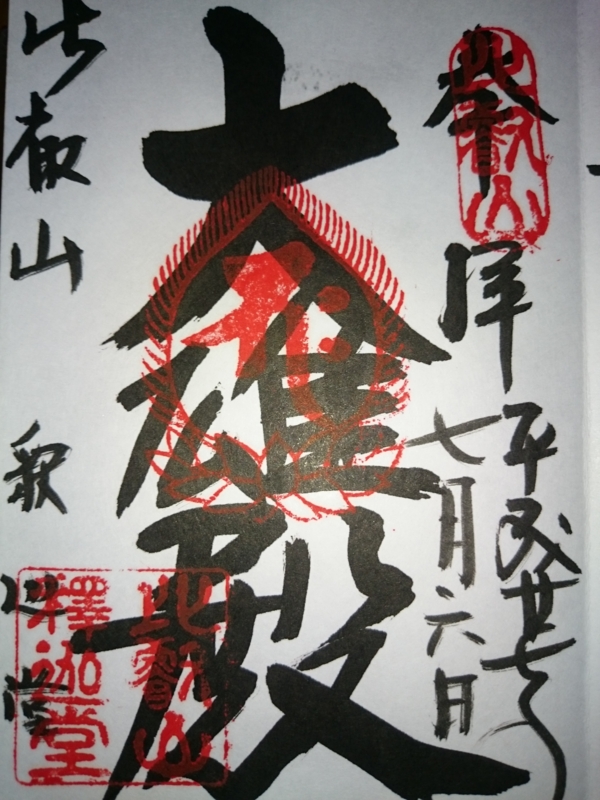 比叡山
奉拝
平成廿七年
七月六日
大雄殿
比叡山　釈迦堂
比叡山
釋迦堂